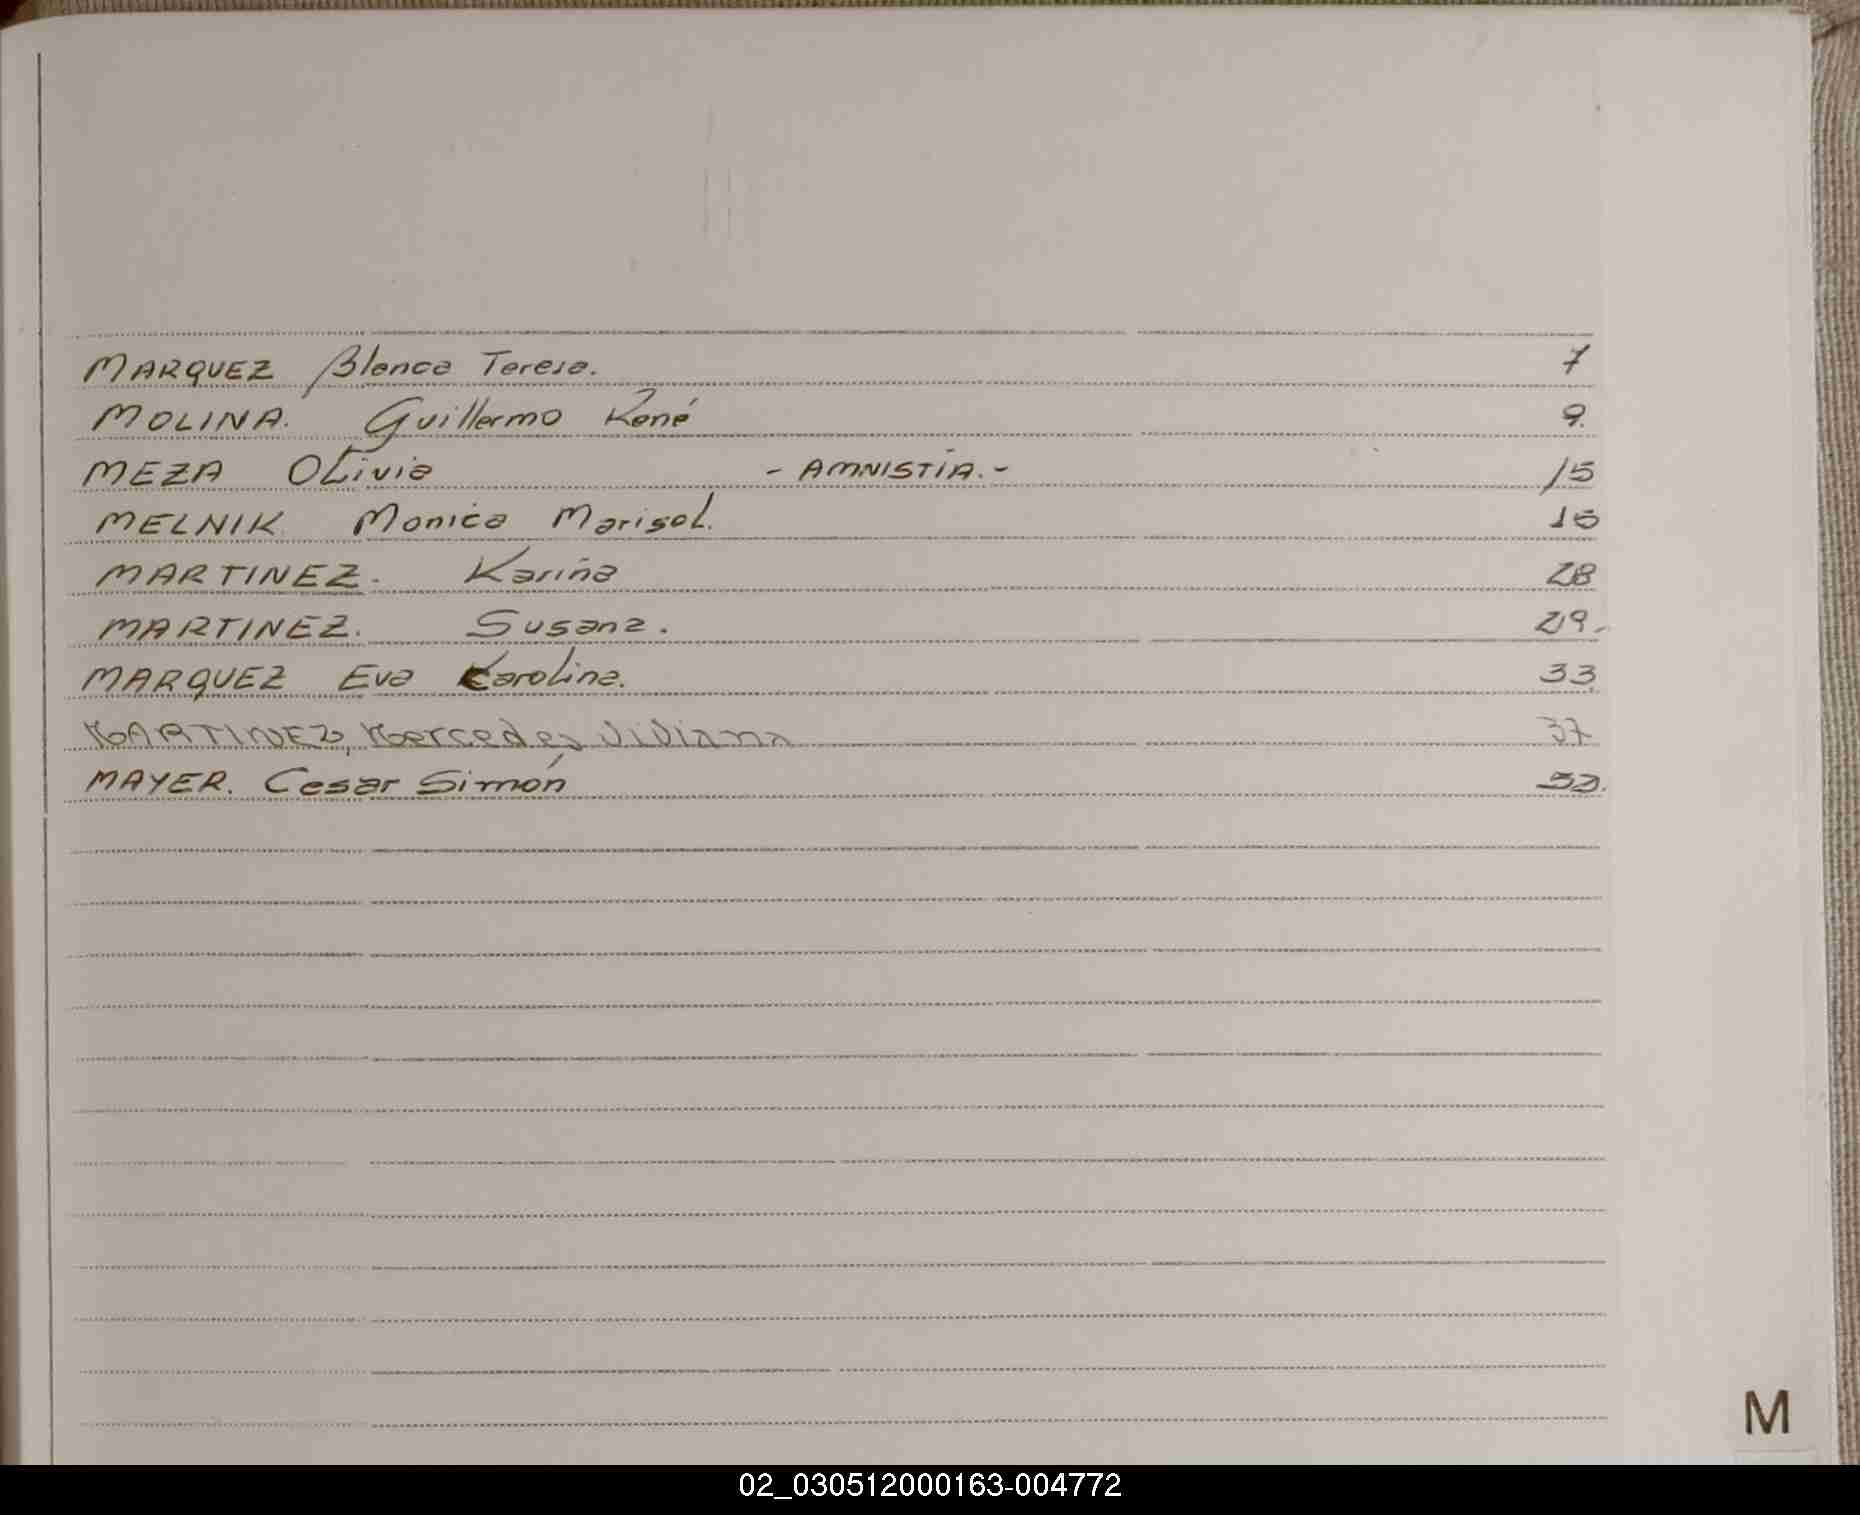 MARQUEZ Blanca Teresa. 7
MOLINA. Guillermo René 9.
MEZA Olivia - AMNISTÍA.- 15
MELNIK Monica Marisol. 16
MARTINEZ. Karina 28
MARTINEZ. Susana. 29.
MARQUEZ Eva Karolina. 33
MARTINEZ, Mercedes Viviana 37
MAYER. Cesar Simón
M
02_030512000163-004772